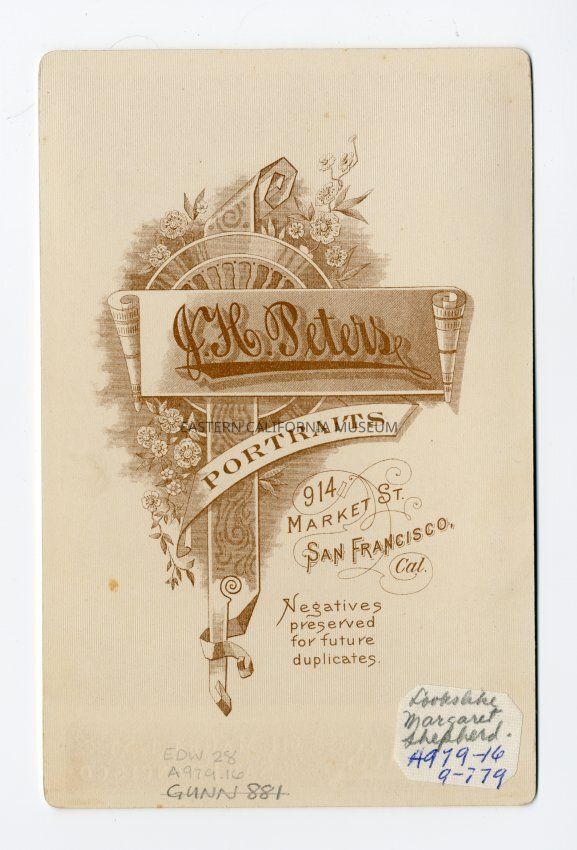 J.H. Peters
EASTERN CALIFORNIA MUSEUM
PORTRAITS
914
MARKET ST.
SAN FRANCISCO,
Cal.
Negatives
preserved
for future
duplicates.
Looks like
Margaret
Shepherd.
A979-16
9-779
EDW 28
A979.16
GUNN 881